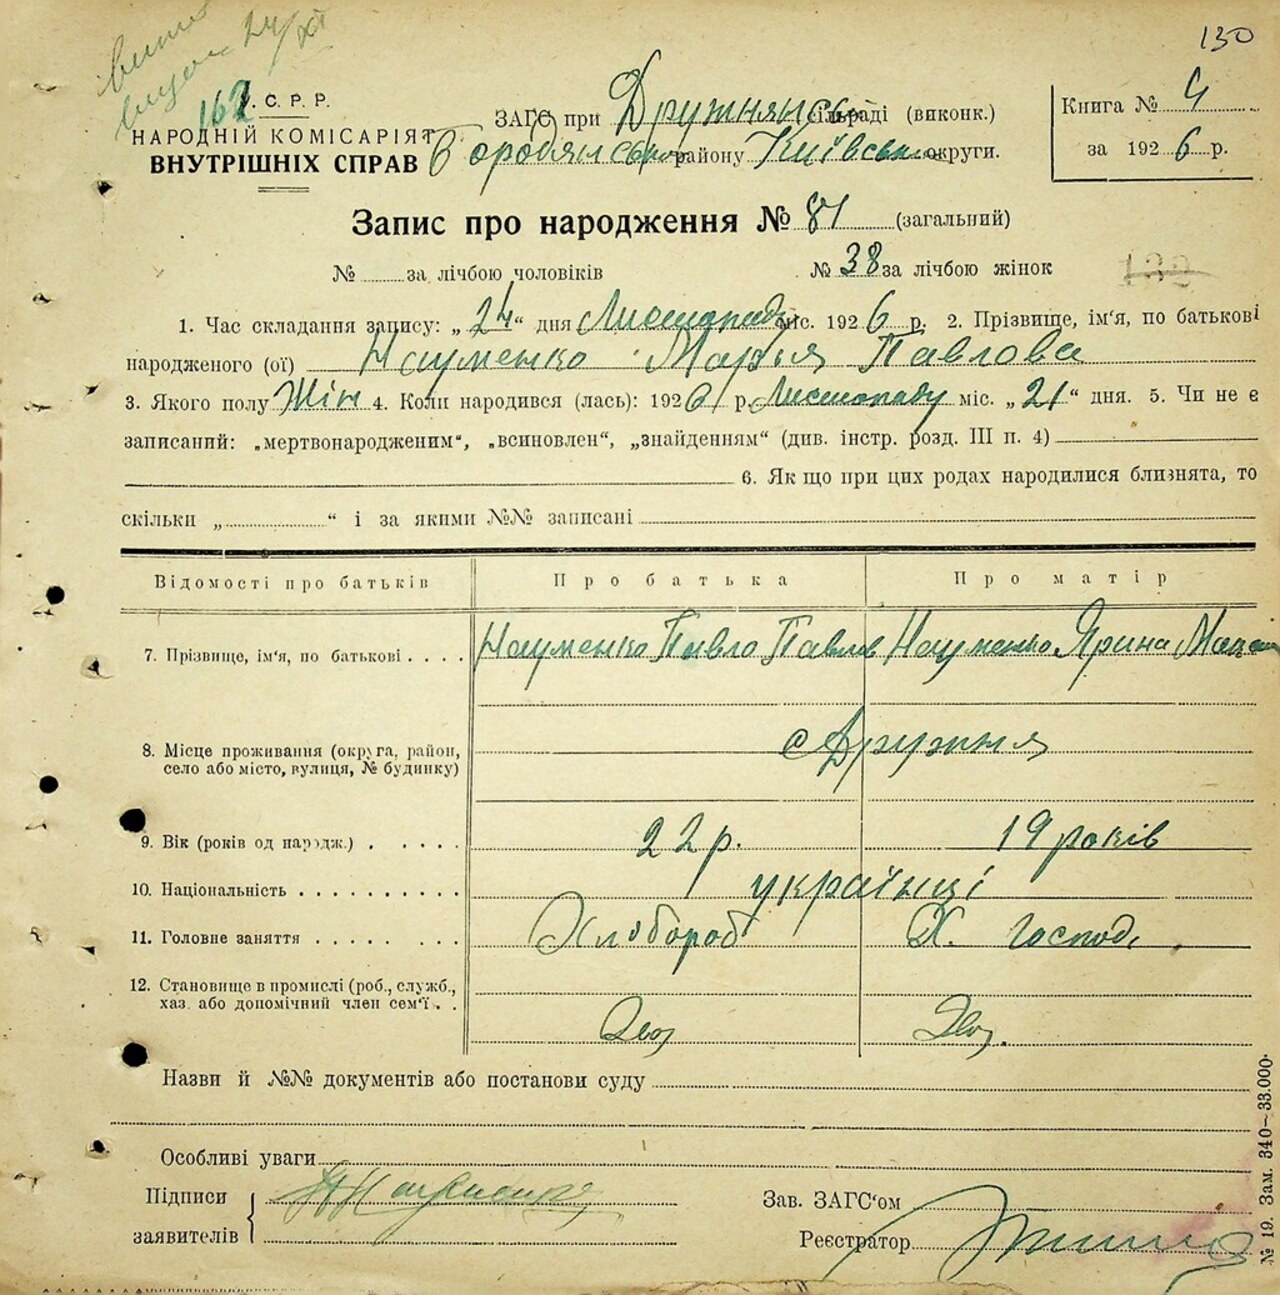 130
162
У. С. Р. Р.
НАРОДНІЙ КОМІСАРІЯТ
ВНУТРІШНІХ СПРАВ
ЗАГС при Дружнянськ сільраді (виконк.)
Бородянськ району Київськ округи.
Книга № 4
за 1926 р.
Запис про народження № 81 (загальний)
№ за лічбою чоловіків № 38 за лічбою жінок
1. Час складання запису: „24“ дня Листопаду міс. 1926 р. 2. Прізвище, ім'я, по батькові
народженого (ої) Науменко Марья Павлова
3. Якого полу Жін 4. Коли народився (лась): 1926 р. Листопаду міс. „21“ дня. 5. Чи не є
записаний: „мертвонародженим“, „всиновлен“, „знайденням“ (див. інстр. розд. III п. 4)
6. Як що при цих родах народилися близнята, то
скільки „ “ і за якими №№ записані
Відомості про батьків Про батька Про матір
7. Прізвище, ім'я, по батькові . . . . Науменко Павло Павлов Науменко Ярина
8. Місце проживання (округа, район,
село або місто, вулиця, № будинку) с Дружня
9. Вік (років од народж.) . . . . . 22 р. 19 років
10. Національність . . . . . . . . . . українці
11. Головне заняття . . . . . . . . Хлібороб Х. господ.
12. Становище в промислі (роб., служб.,
хаз. або допомічний член сем'ї . .
Назви й №№ документів або постанови суду
Особливі уваги
Підписи
заявителів
Зав. ЗАГС'ом
Реєстратор
№ 19. Зам. 340—33.000.